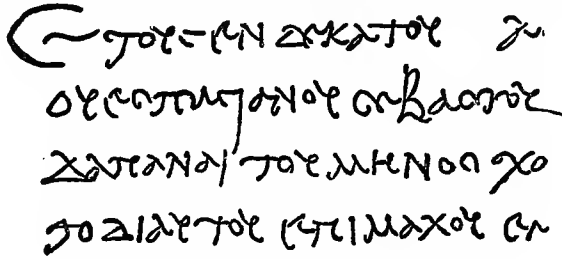 ετουσ ενδεκατου αυ
ουεσπασιανου σεβαστου
δαπαναι του μηνοσ χο
διαυτου επιμαχου